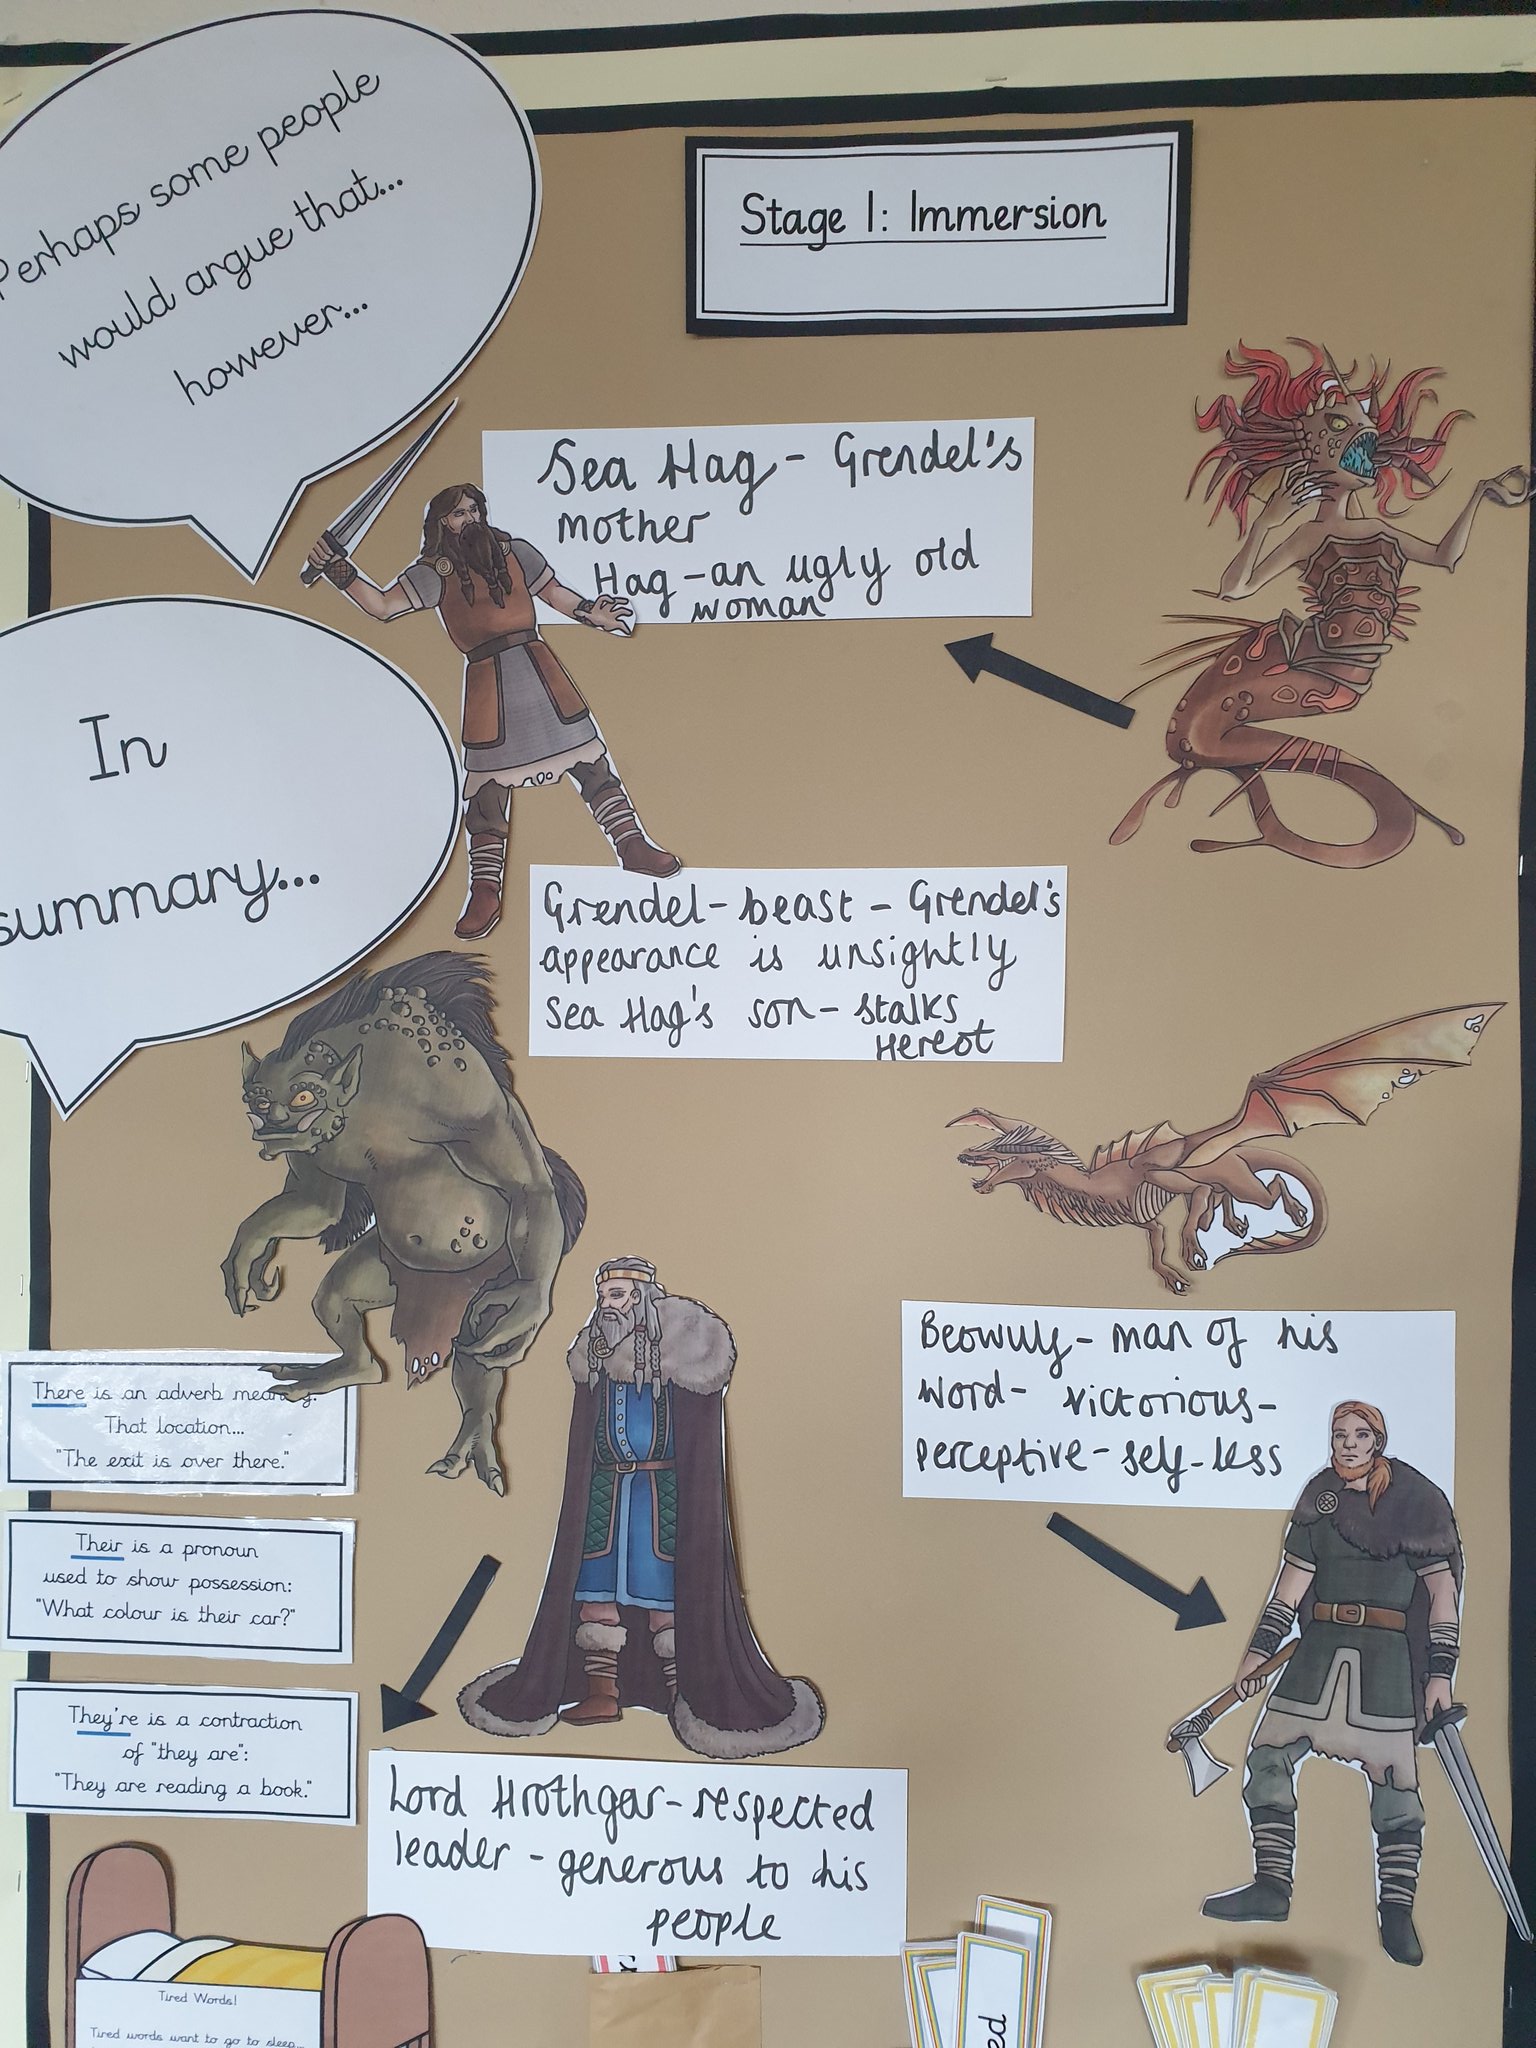 Perhaps some people
would argue that...
however...
Stage 1: Immersion
Sea Hag - Grendel's
mother
Hag - an ugly old
woman
In
summary...
Grendel - beast - Grendel's
appearance is unsightly
Sea Hag's son - stalks
Hereot
Beowulf - man of his
word - victorious -
perceptive - self-less
There is an adverb meaning:
That location...
"The exit is over there."
Their is a pronoun
used to show possession:
"What colour is their car?"
They're is a contraction
of "they are":
"They are reading a book."
Lord Hrothgar - respected
leader - generous to his
people
Tired Words!
Tired words want to go to sleep...
ed